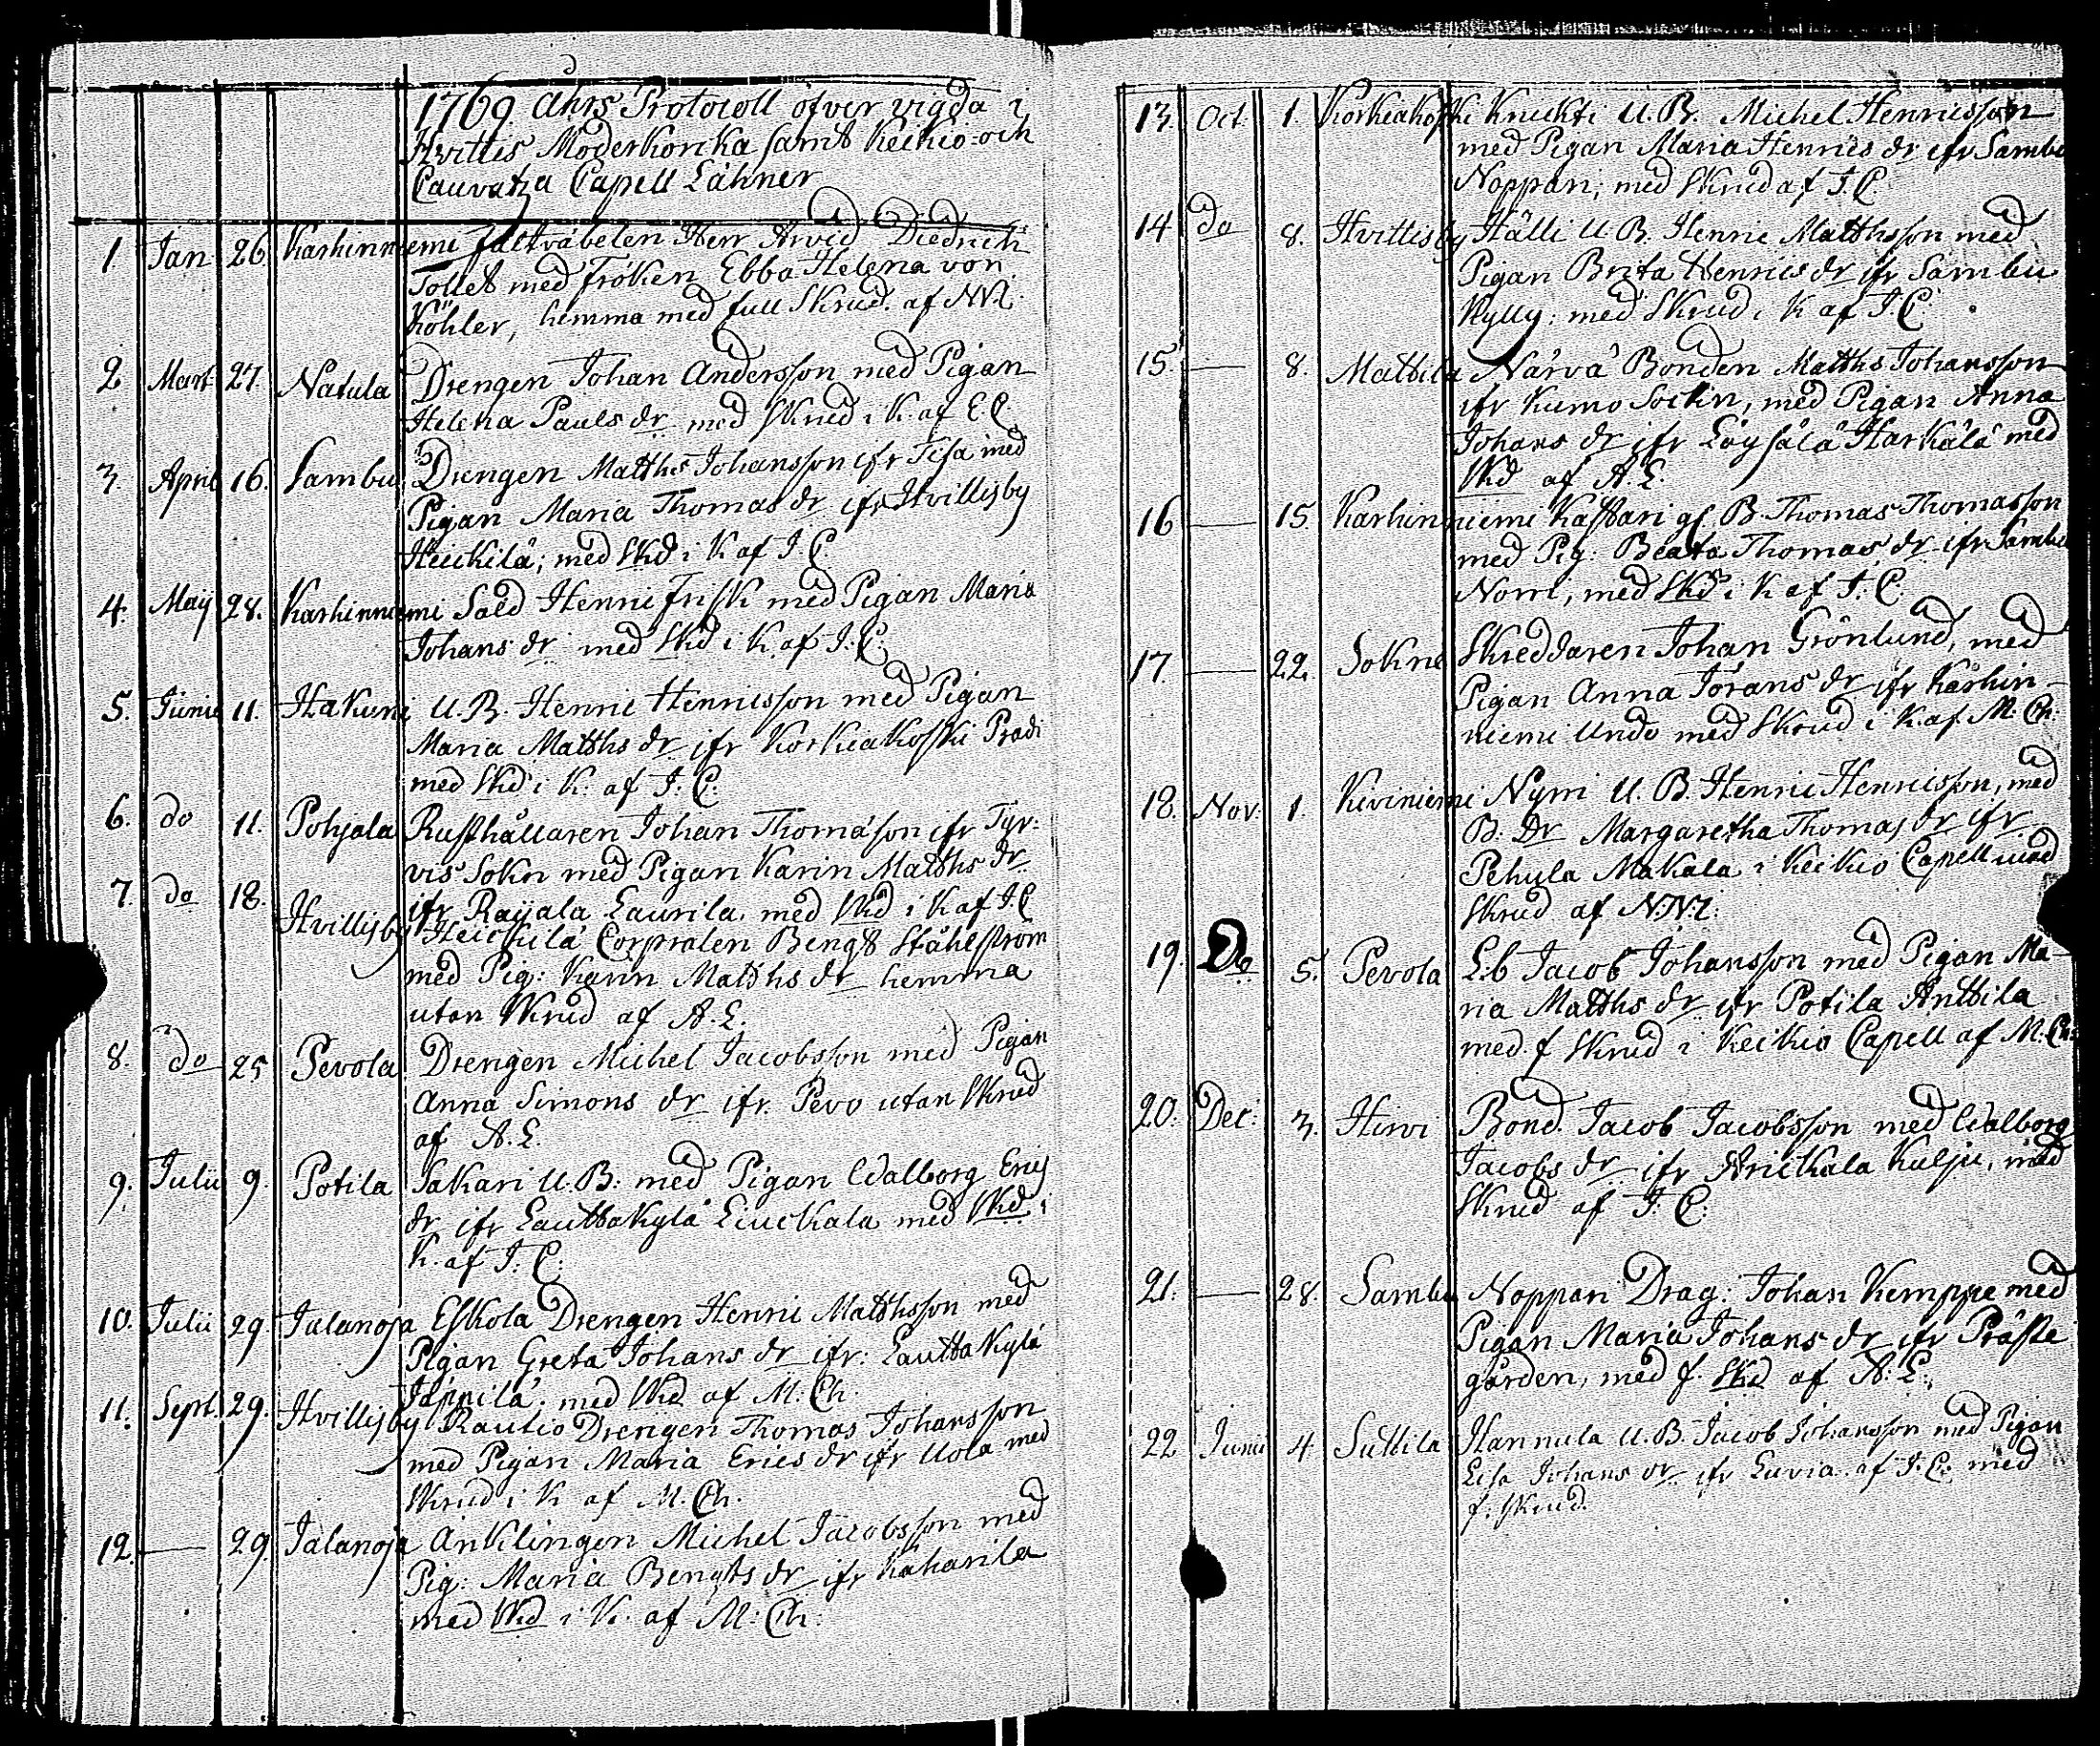 1769 Åhrs Protocoll öfver vigda i
Hvittis Moderkÿrka samt Keikio- och
Cauvatza Capell Låhner
1. Jan 26 Karhinniemi Fältväbelen Herr Arvid Diedrich
Tollet med Fröken Ebba Helena von
Köhler, hemma med full Skrud. af NNL.
2 Mart 27. Natula Drengen Johan Andersson med Pigan
Helena Pauls dr med Skrud i K. af E.C.
3. April 16. Sambu Drengen Matths Johansson ifr Tisa med
Pigan Maria Thomas dr ifr Hvittisby
Heickilä; med Skd i K af J.C.
4. Maij 28. Karhinniemi Sold Henric Frisk med Pigan Maria
Johans dr med Skd i K. af J.C.
5. Junii 11. Hakuni U.B. Henric Henricsson med Pigan
Maria Matths dr ifr Korkeakoski Pradi
med Skd i K. af J.C.
6. do 11. Pohjala Rusthållaren Johan Thomasson ifr Tyr-
vis Sokn med Pigan Karin Matths dr
ifr Raijala Laurila, med Skd i K af J.C
7. do 18. Hvittisby Heickilä Corpralen Bengt Ståhlström
med Pig: Karin Matths dr hemma
utan Skrud af A.L.
8. do 25 Pevola Drengen Michel Jacobsson med Pigan
Anna Simons dr ifr. Pevo utan Skrud
af A.L.
9. Julii 9. Potila Sakari U.B. med Pigan Walborg Erics
dr ifr Lauttakylä Liuckala med Skd i
K. af J.C.
10. Julii 29. Jalanoja Eskola Drengen Henric Matthsson med
Pigan Greta Johans dr ifr: Lauttakylä
Jäpnilä; med Skd af M: Ch.
11. Sept. 29. Hvittisby Rautio Drengen Thomas Johansson
med Pigan Maria Erics dr ifr Uola med
Skrud i K af M. Ch.
12. — 29. Jalanoja Anklingen Michel Jacobsson med
Pig: Maria Bengts dr ifr Kaharila
med Skd i K. af M: Ch:
13. Oct. 1. Korkeakoski Knuckti U.B. Michel Henricsson
med Pigan Maria Henrics dr ifr Sambu
Noppari; med Skrud af J.C
14 do 8. Hvittisby Hälli U.B. Henric Matthsson med
Pigan Brita Henrics dr ifr Sambu
Kylly: med Skrud i K af J.C.
15. — 8. Mattila Närvä Bonden Matths Johansson
ifr Kumo Sockn, med Pigan Anna
Johans dr ifr Löysälä Harkälä med
Skd af A.L.
16 — 15 Karhinniemi Kästari gl B. Thomas Thomasson
med Pig: Beata Thomas dr ifr Sambu
Norri, med Skd i K af J:C:
17. — 22. Sokne Skreddaren Johan Grönlund, med
Pigan Anna Jörans dr ifr Karhin-
niemi Undo med Skrud i K. af M: Ch:
18. Nov: 1. Kiviniemi Nyrri U.B. Henric Henricsson, med
B: Dr Margaretha Thomas dr ifr
Pehula Makala i Keikio Capell med
Skrud af N.N.L.
19. Do 5. Pevola Lb Jacob Johansson med Pigan Ma-
ria Matths dr ifr Potila Anttila
med f Skrud i Keikio Capell af M: Ch:
20. Dec: 3. Hirvi Bond. Jacob Jacobsson med Walborg
Jacobs dr ifr Arickala Kulju, med
Skrud af J:C:
21. — 28. Sambu Noppari Drag: Johan Kemppe med
Pigan Maria Johans dr ifr Präste
gården, med f. Skd af A:L:
22 Junii 4 Suttila Hannula U.B. Jacob Johansson med Pigan
Lisa Johans dr ifr Euvia. af J.C: med
f: Skrud.